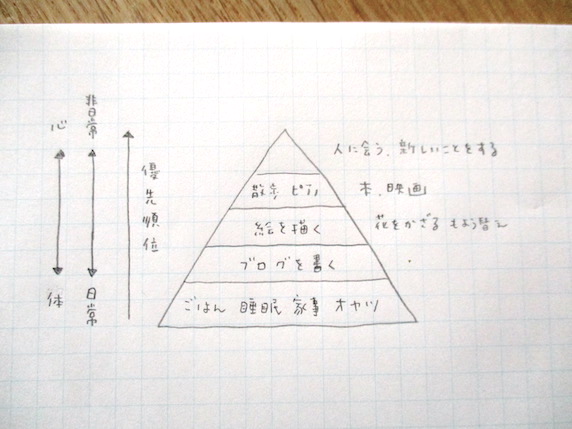 心
体
非日常
日常
優先順位
人に会う、新しいことをする
散歩 ピアノ
本、映画
絵を描く
花をかざる もよう替え
ブログを書く
ごはん 睡眠 家事 オヤツ